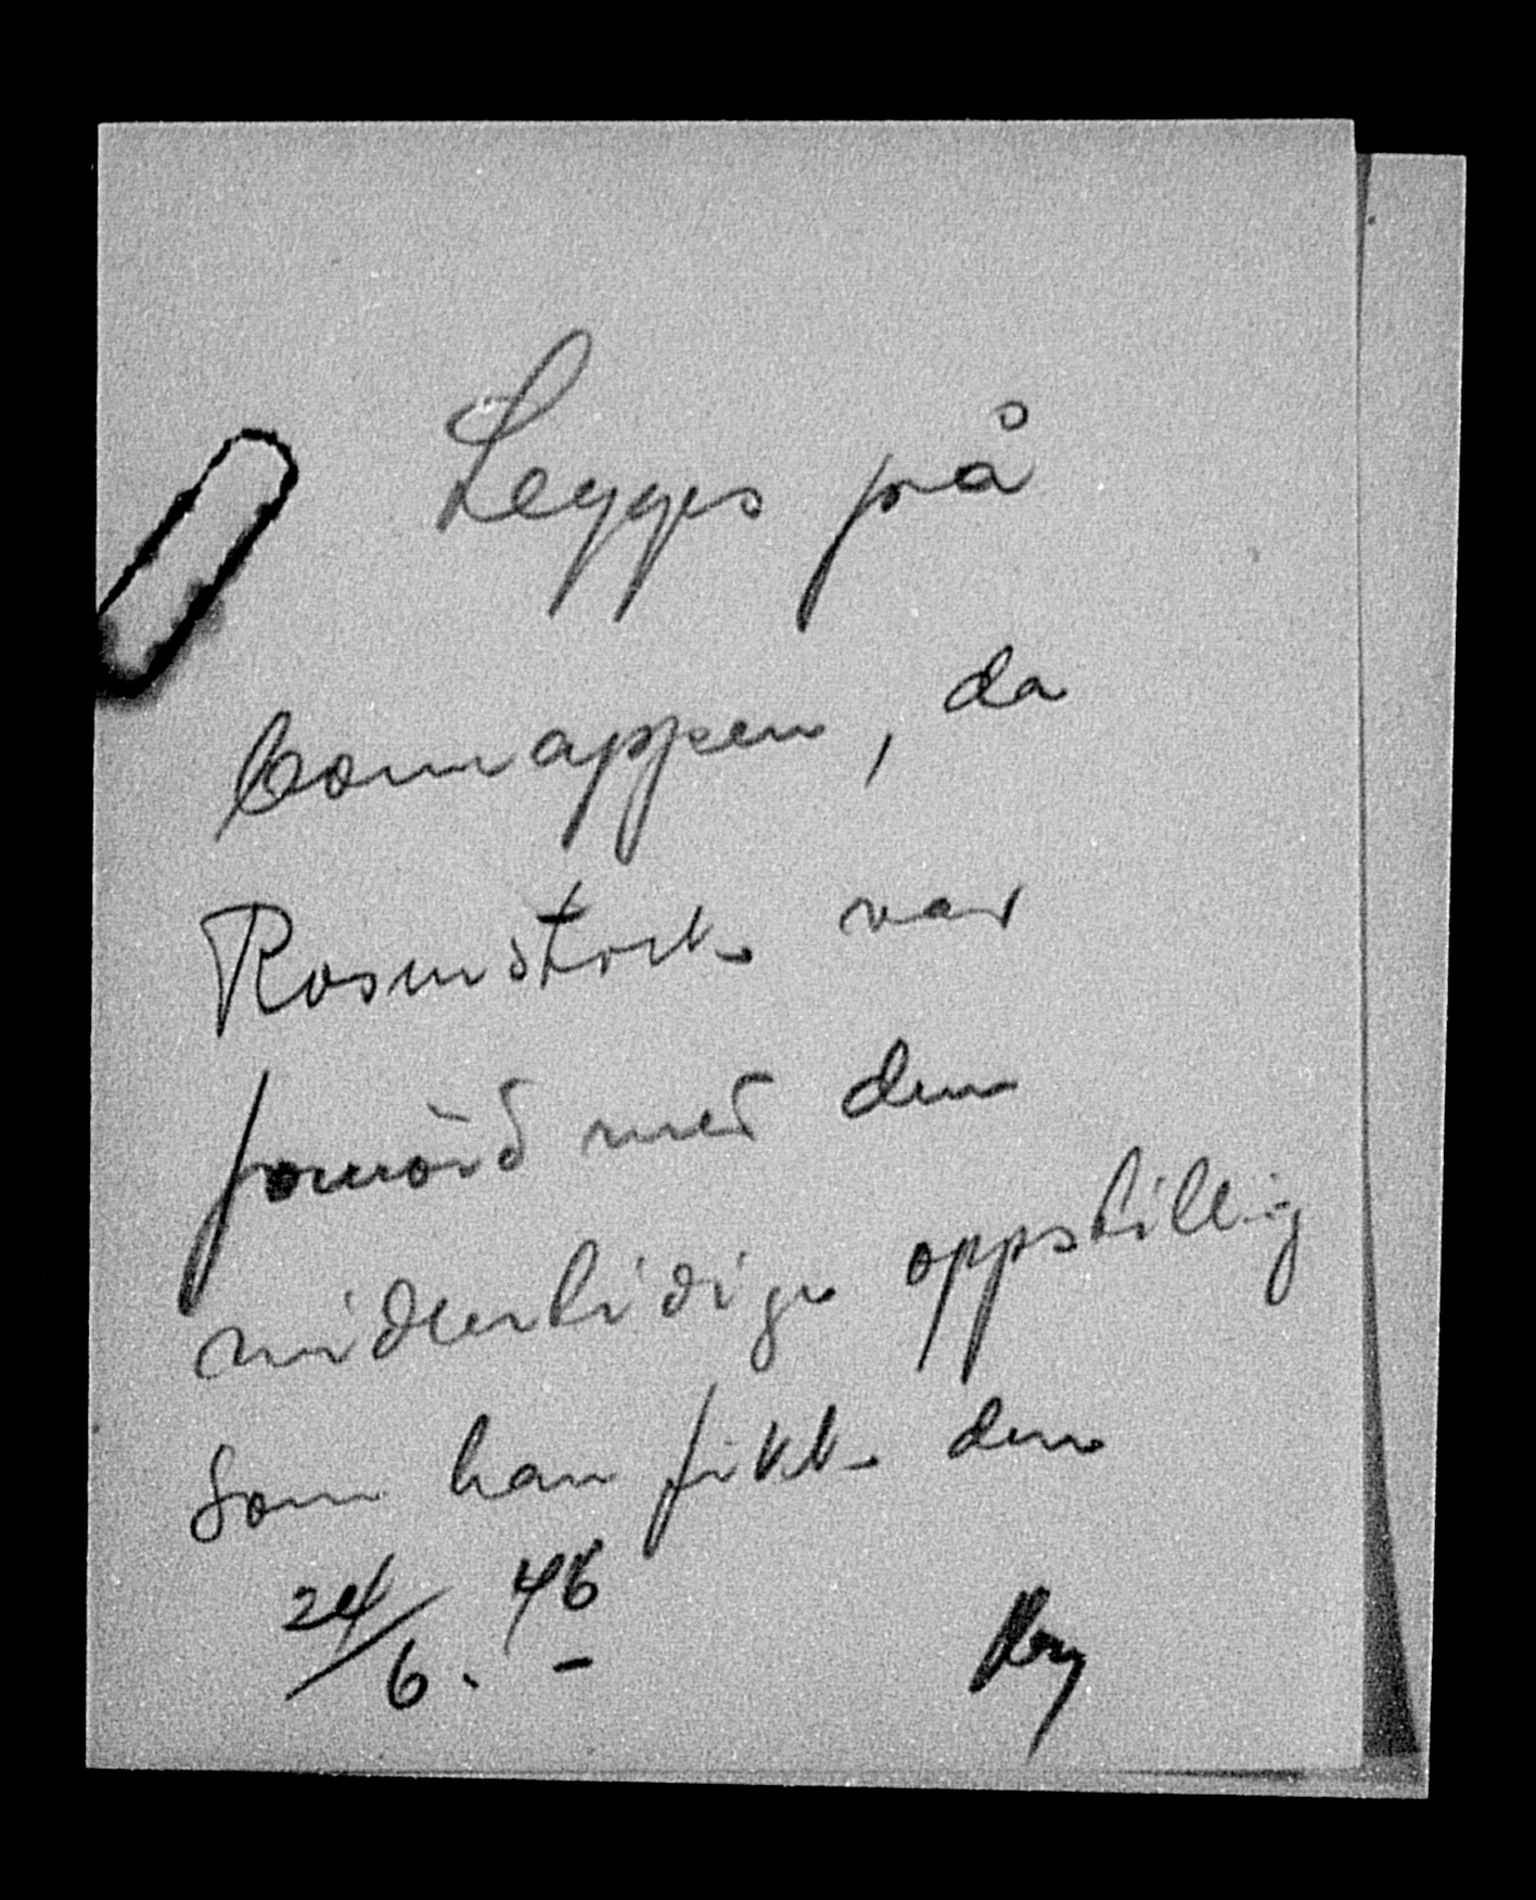 Legges på
bomappen, da
Rosenstock var
fornöid med den
midlertidige oppstilling
som han fikk den
24/6. 46